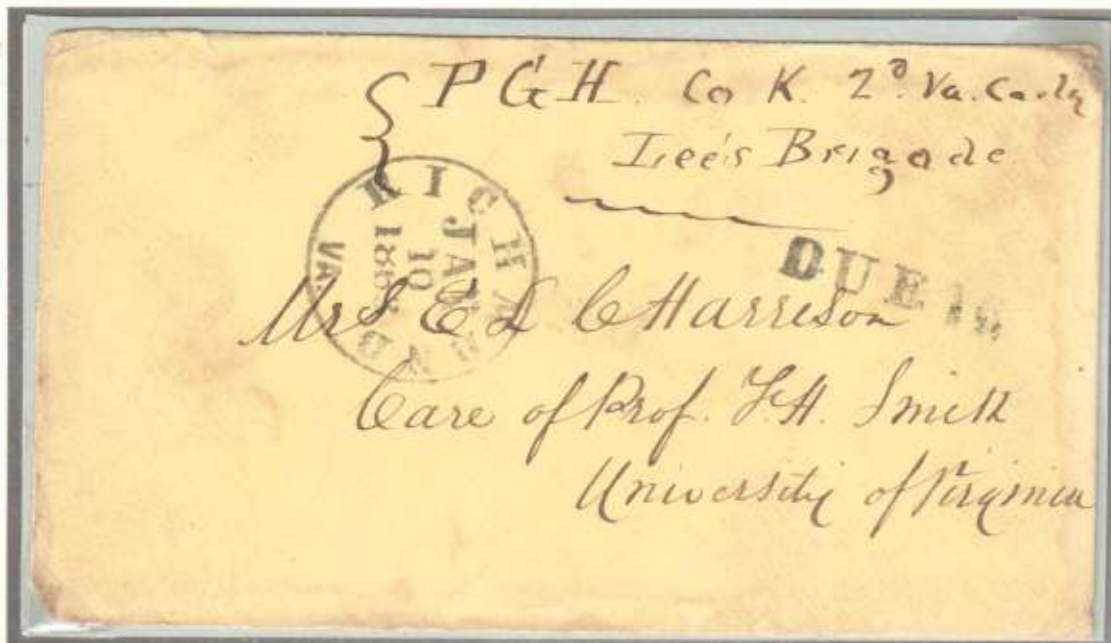 P G H Co K. 2d. Va. Cavly
Lee's Brigade
RICHMOND
JAN
10
VA.
DUE
Mrs E L C Harrison
Care of Prof. F. H. Smith
University of Virginia